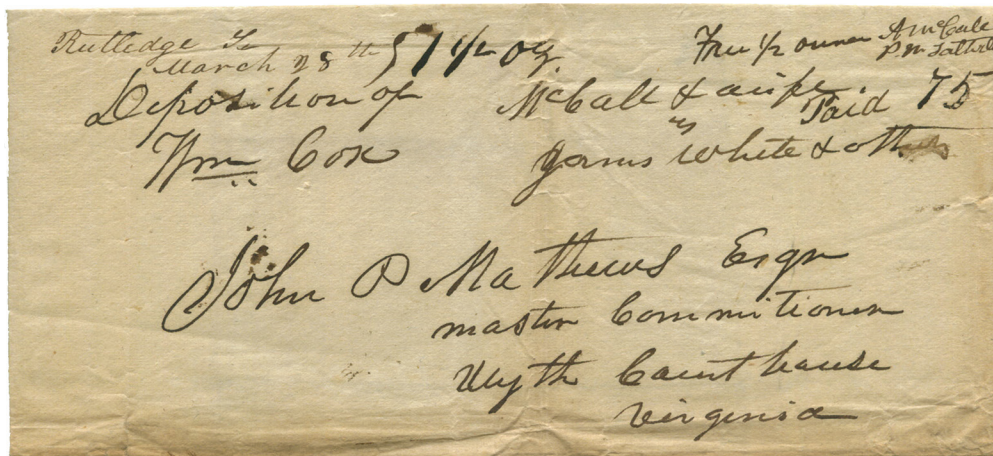 Rutledge Te
March 28th 1 1/2 oz
Free 1/2 ounce A McCall
P.M.
Deposition of
Wm Cox
McCall & Paid 75
vs
James White & others
John P Mathews Esqr
master Commitioner
Wyth Court house
Virginia